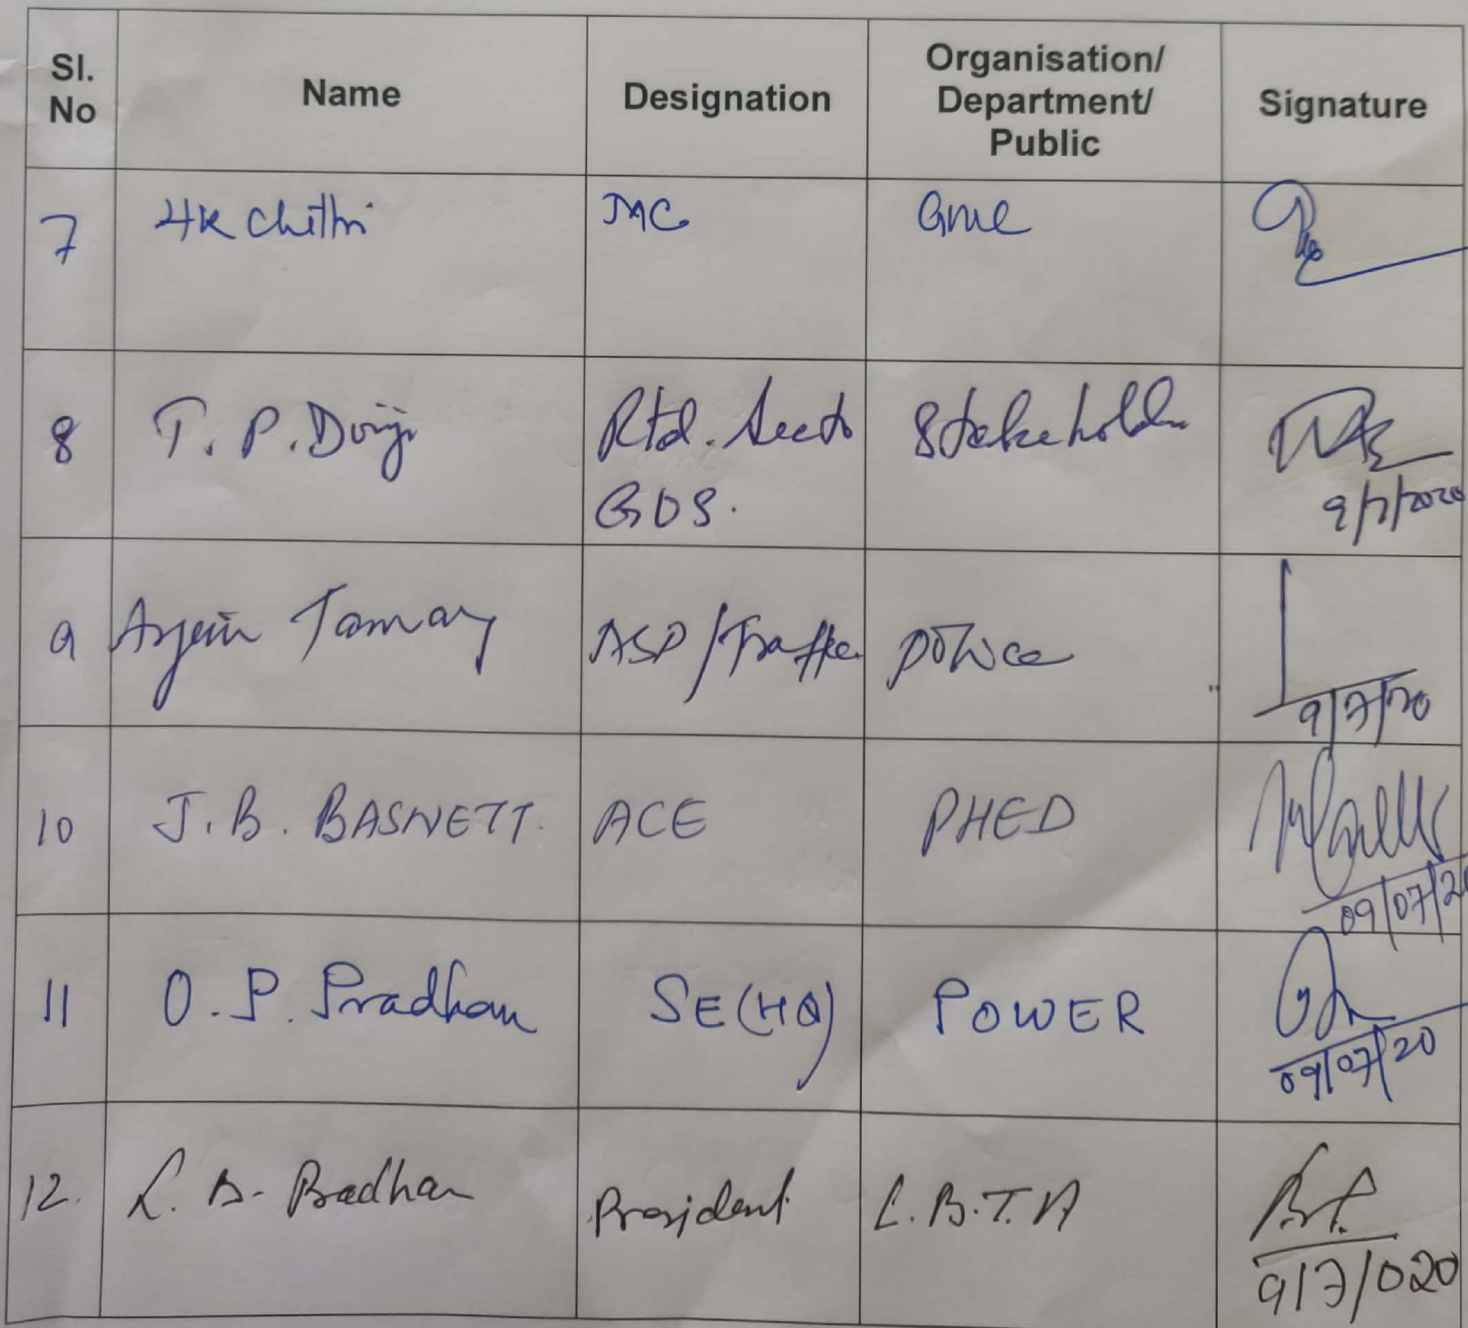 Sl. No Name Designation Organisation/ Department/ Public Signature
7 HK Chettri JMC GMC
8 T. P. Dorji Rtd. Secty GOS. Stakeholder 9/7/2020
9 Arjun Tamang ASP/Traffic Police 9/7/20
10 J. B. BASNETT. ACE PHED 09/07/20
11 O. P. Pradhan SE(HQ) POWER 09/07/20
12. L. B. Pradhan President L.B.T.A 9/7/020